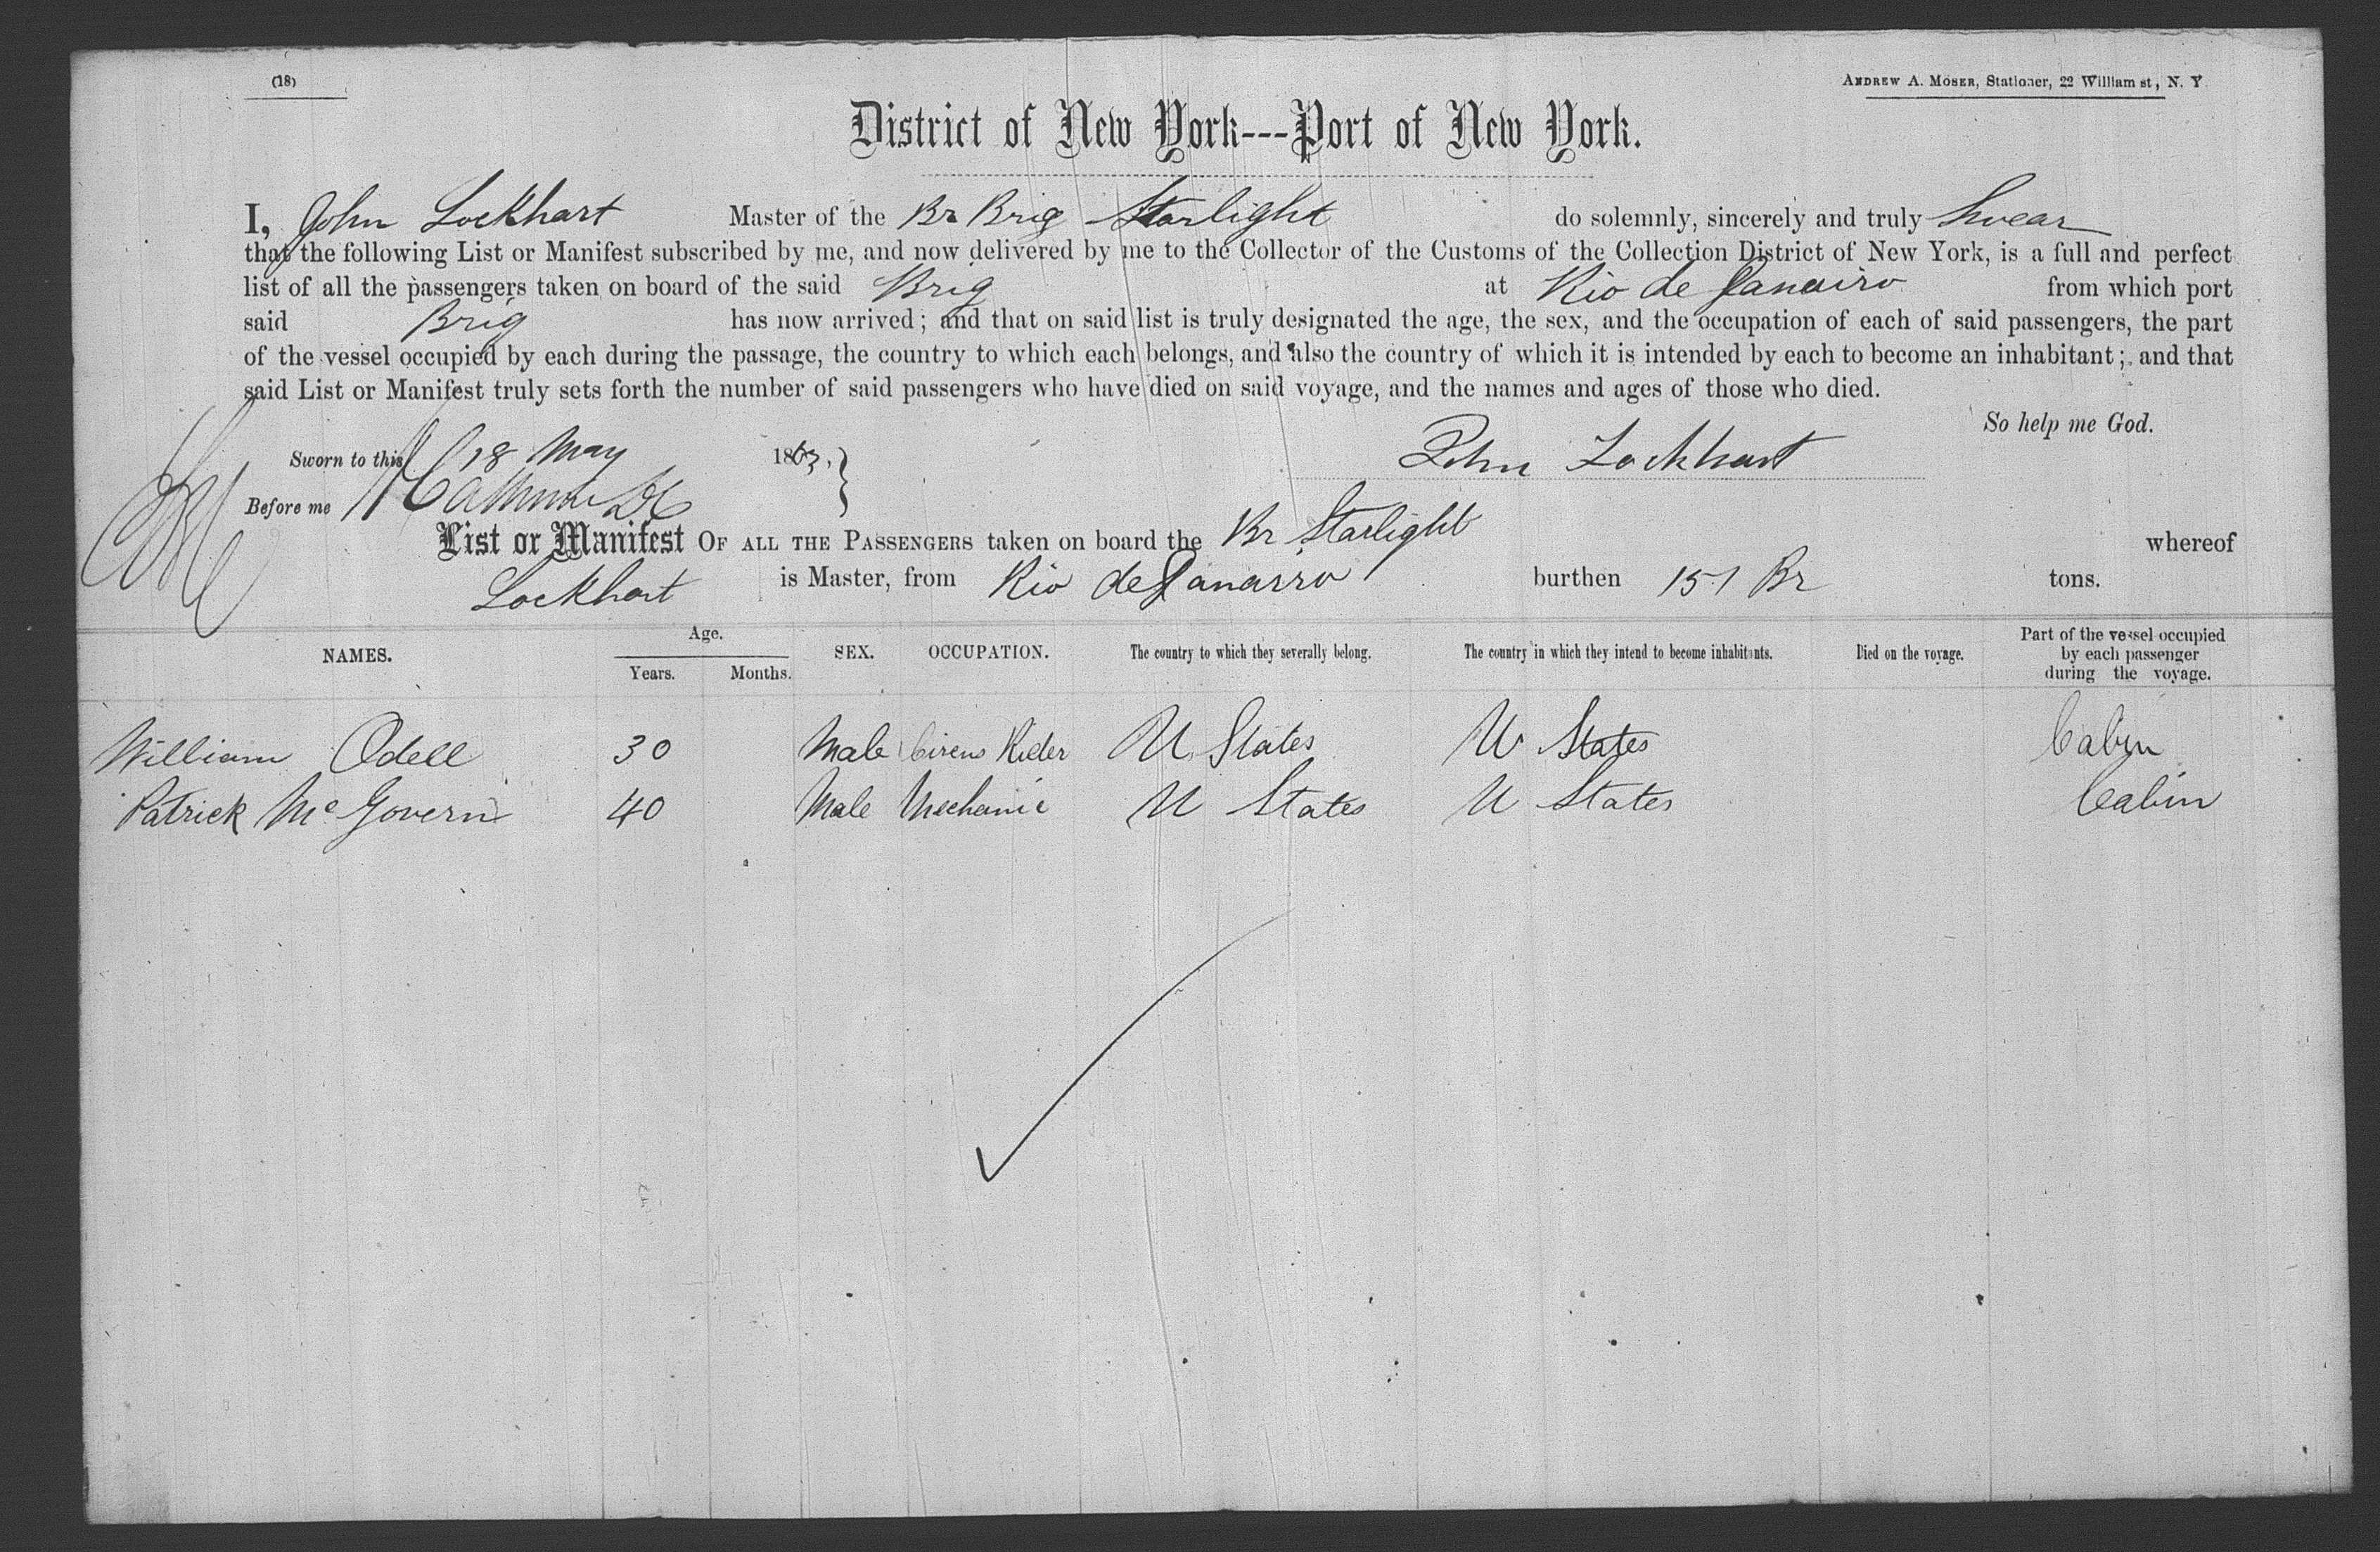 (18)
ANDREW A. MOSER, Stationer, 22 William st, N. Y
District of New York---Port of New York.
I, John Lockhart Master of the Br Brig Starlight do solemnly, sincerely and truly Swear
that the following List or Manifest subscribed by me, and now delivered by me to the Collector of the Customs of the Collection District of New York, is a full and perfect
list of all the passengers taken on board of the said Brig at Rio de Janairo from which port
said Brig has now arrived; and that on said list is truly designated the age, the sex, and the occupation of each of said passengers, the part
of the vessel occupied by each during the passage, the country to which each belongs, and also the country of which it is intended by each to become an inhabitant; and that
said List or Manifest truly sets forth the number of said passengers who have died on said voyage, and the names and ages of those who died.
So help me God.
Sworn to this 18 May 1863.
John Lockhart
Before me
List or Manifest OF ALL THE PASSENGERS taken on board the Br Starlight whereof
Lockhart is Master, from Rio de Janarro burthen 151 Br tons.
NAMES. Age. Years. Months. SEX. OCCUPATION. The country to which they severally belong. The country in which they intend to become inhabitants. Died on the voyage. Part of the vessel occupied by each passenger during the voyage.
William Odell 30 Male Circus Rider U States U States Cabin
Patrick McGovern 40 Male Mechanic U States U States Cabin